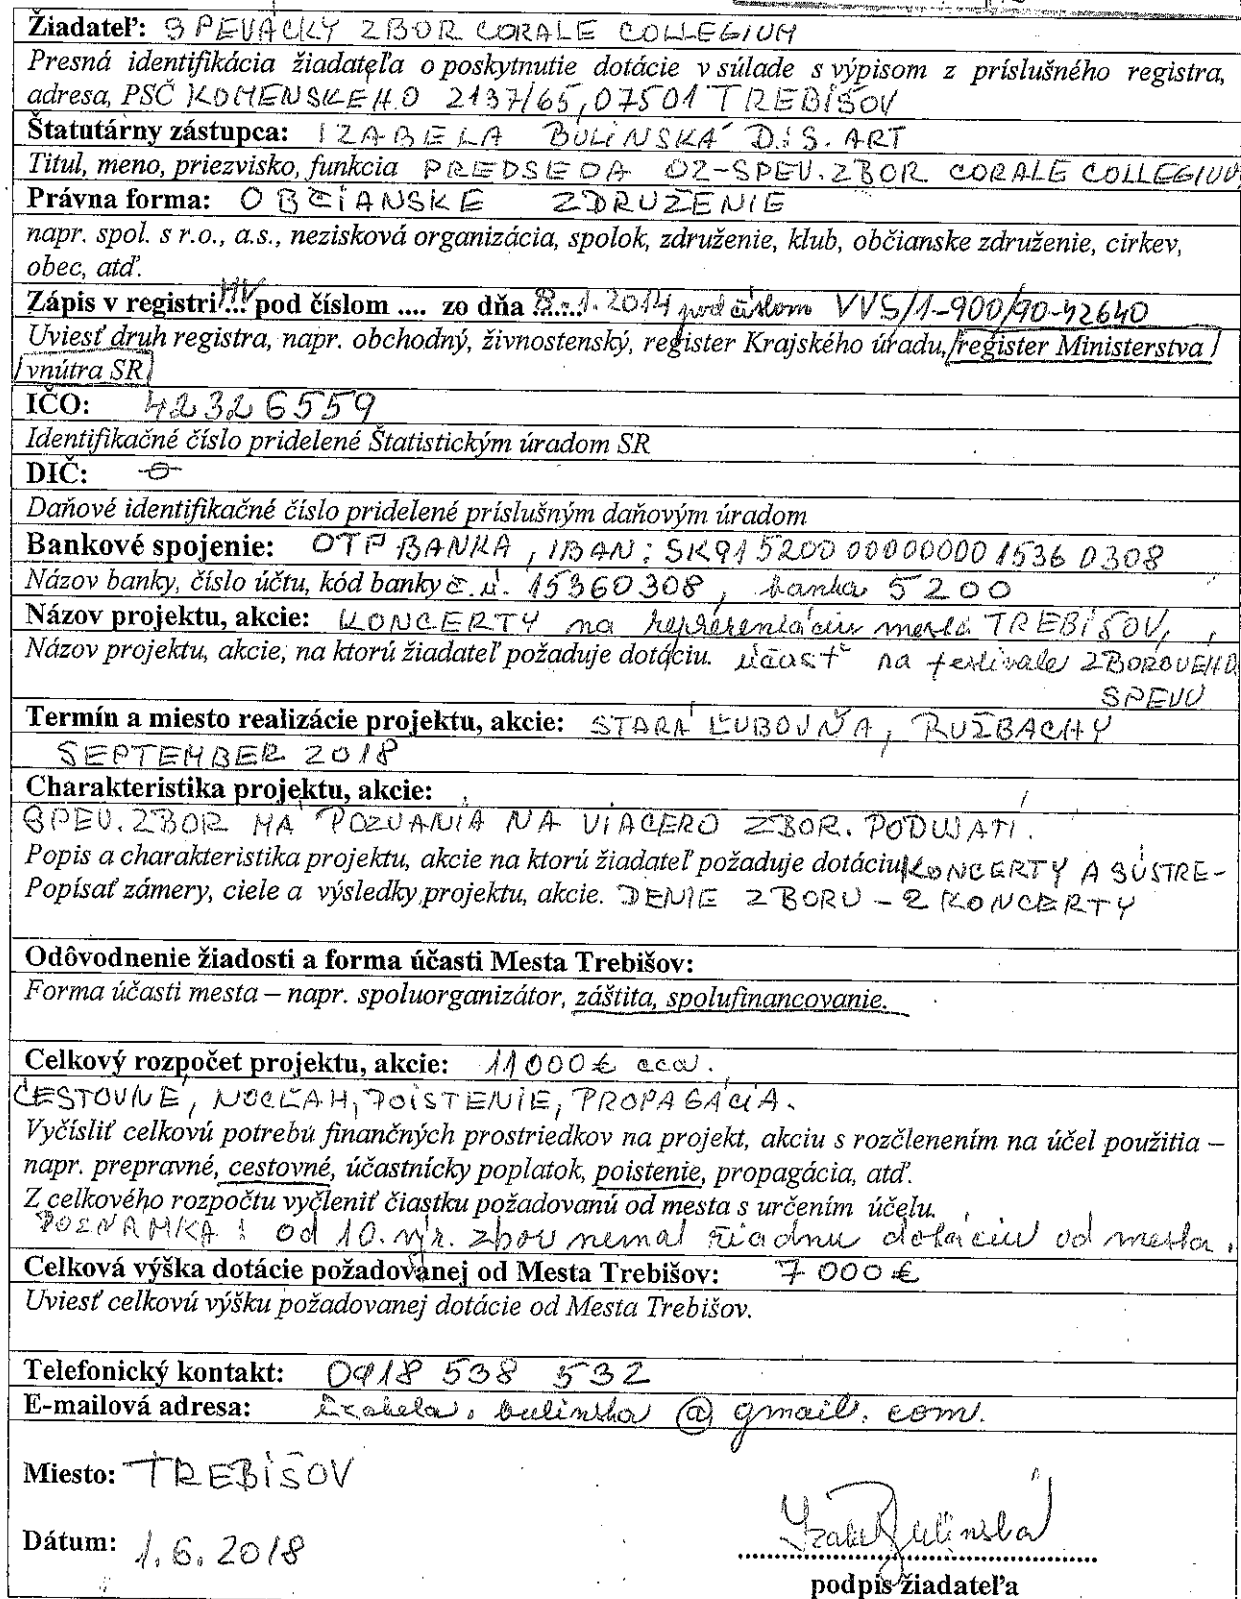 Žiadateľ: SPEVÁCKY ZBOR CORALE COLLEGIUM
Presná identifikácia žiadateľa o poskytnutie dotácie v súlade s výpisom z príslušného registra,
adresa, PSČ KOMENSKÉHO 2137/65, 07501 TREBIŠOV
Štatutárny zástupca: IZABELA BULINSKÁ D.i.S. ART
Titul, meno, priezvisko, funkcia PREDSEDA OZ-SPEV. ZBOR CORALE COLLEGIUM
Právna forma: OBČIANSKE ZDRUŽENIE
napr. spol. s r.o., a.s., nezisková organizácia, spolok, združenie, klub, občianske združenie, cirkev,
obec, atď.
Zápis v registri MV pod číslom .... zo dňa 8.1.2014 pod číslom VVS/1-900/90-42640
Uviesť druh registra, napr. obchodný, živnostenský, register Krajského úradu, register Ministerstva
vnútra SR
IČO: 42326559
Identifikačné číslo pridelené Štatistickým úradom SR
DIČ: -0-
Daňové identifikačné číslo pridelené príslušným daňovým úradom
Bankové spojenie: OTP BANKA, IBAN: SK91 5200 0000 0000 1536 0308
Názov banky, číslo účtu, kód banky č.ú. 15360308, banka 5200
Názov projektu, akcie: KONCERTY na reprezentáciu mesta TREBIŠOV,
Názov projektu, akcie, na ktorú žiadateľ požaduje dotáciu. účasť na festivale ZBOROVÉHO
SPEVU
Termín a miesto realizácie projektu, akcie: STARÁ ĽUBOVŇA, RUŽBACHY
SEPTEMBER 2018
Charakteristika projektu, akcie:
SPEV. ZBOR MÁ POZVANIA NA VIACERO ZBOR. PODUJATÍ.
Popis a charakteristika projektu, akcie na ktorú žiadateľ požaduje dotáciu KONCERTY A SÚSTRE-
Popísať zámery, ciele a výsledky projektu, akcie. DENIE ZBORU - 2 KONCERTY
Odôvodnenie žiadosti a forma účasti Mesta Trebišov:
Forma účasti mesta – napr. spoluorganizátor, záštita, spolufinancovanie.
Celkový rozpočet projektu, akcie: 11000€ cca.
CESTOVNÉ, NOCĽAH, POISTENIE, PROPAGÁCIA.
Vyčísliť celkovú potrebu finančných prostriedkov na projekt, akciu s rozčlenením na účel použitia –
napr. prepravné, cestovné, účastnícky poplatok, poistenie, propagácia, atď.
Z celkového rozpočtu vyčleniť čiastku požadovanú od mesta s určením účelu.
POZNÁMKA: od 10. výr. zbor nemal žiadnu dotáciu od mesta.
Celková výška dotácie požadovanej od Mesta Trebišov: 7000€
Uviesť celkovú výšku požadovanej dotácie od Mesta Trebišov.
Telefonický kontakt: 0918 538 532
E-mailová adresa: izabela.bulinska@gmail.com.
Miesto: TREBIŠOV
Dátum: 1.6.2018
Izabela Bulinská
podpis žiadateľa